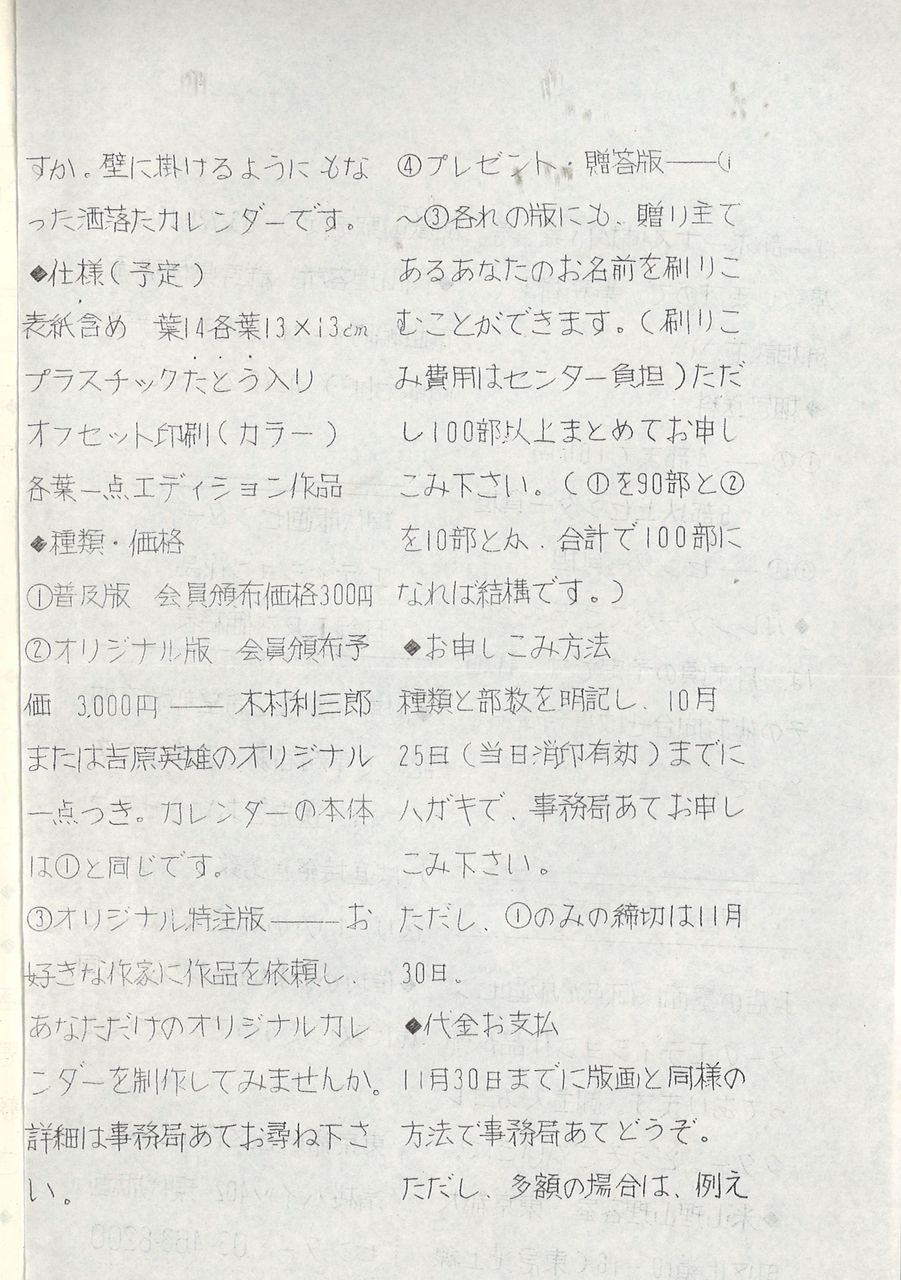 すか。壁に掛けるようにもな
った洒落たカレンダーです。
◆仕様(予定)
表紙含め 葉14各葉13×13cm
プラスチックたとう入り
オフセット印刷(カラー)
各葉一点エディション作品
◆種類・価格
①普及版 会員頒布価格300円
②オリジナル版 会員頒布予
価 3,000円 —— 木村利三郎
または吉原英雄のオリジナル
一点つき。カレンダーの本体
は①と同じです。
③オリジナル特注版——お
好きな作家に作品を依頼し、
あなただけのオリジナルカレ
ンダーを制作してみませんか。
詳細は事務局あてお尋ね下さ
い。
④プレゼント・贈答版——①
〜③各れの版にも、贈り主で
あるあなたのお名前を刷りこ
むことができます。(刷りこ
み費用はセンター負担)ただ
し100部以上まとめてお申し
こみ下さい。(①を90部と②
を10部とか、合計で100部に
なれば結構です。)
◆お申しこみ方法
種類と部数を明記し、10月
25日(当日消印有効)までに
ハガキで、事務局あてお申し
こみ下さい。
ただし、①のみの締切は11月
30日。
◆代金お支払
11月30日までに版画と同様の
方法で事務局あてどうぞ。
ただし、多額の場合は、例え